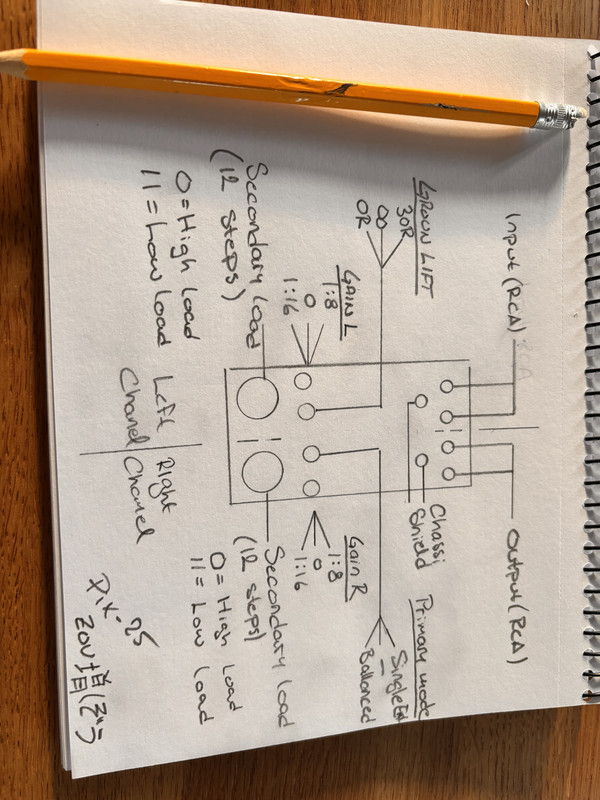 Input (RCA)
Output (RCA)
GROUN LIFT
30R
00
0R
Chassi
Shield
Primary mode
Single Ed
Ballanced
GAIN L
1:8
0
1:16
Gain R
1:8
0
1:16
Secondary load
(12 steps)
0 = High load
11 = Low load
Secondary load
(12 steps)
0 = High Load
11 = Low Load
Left
Chanel
Right
Chanel